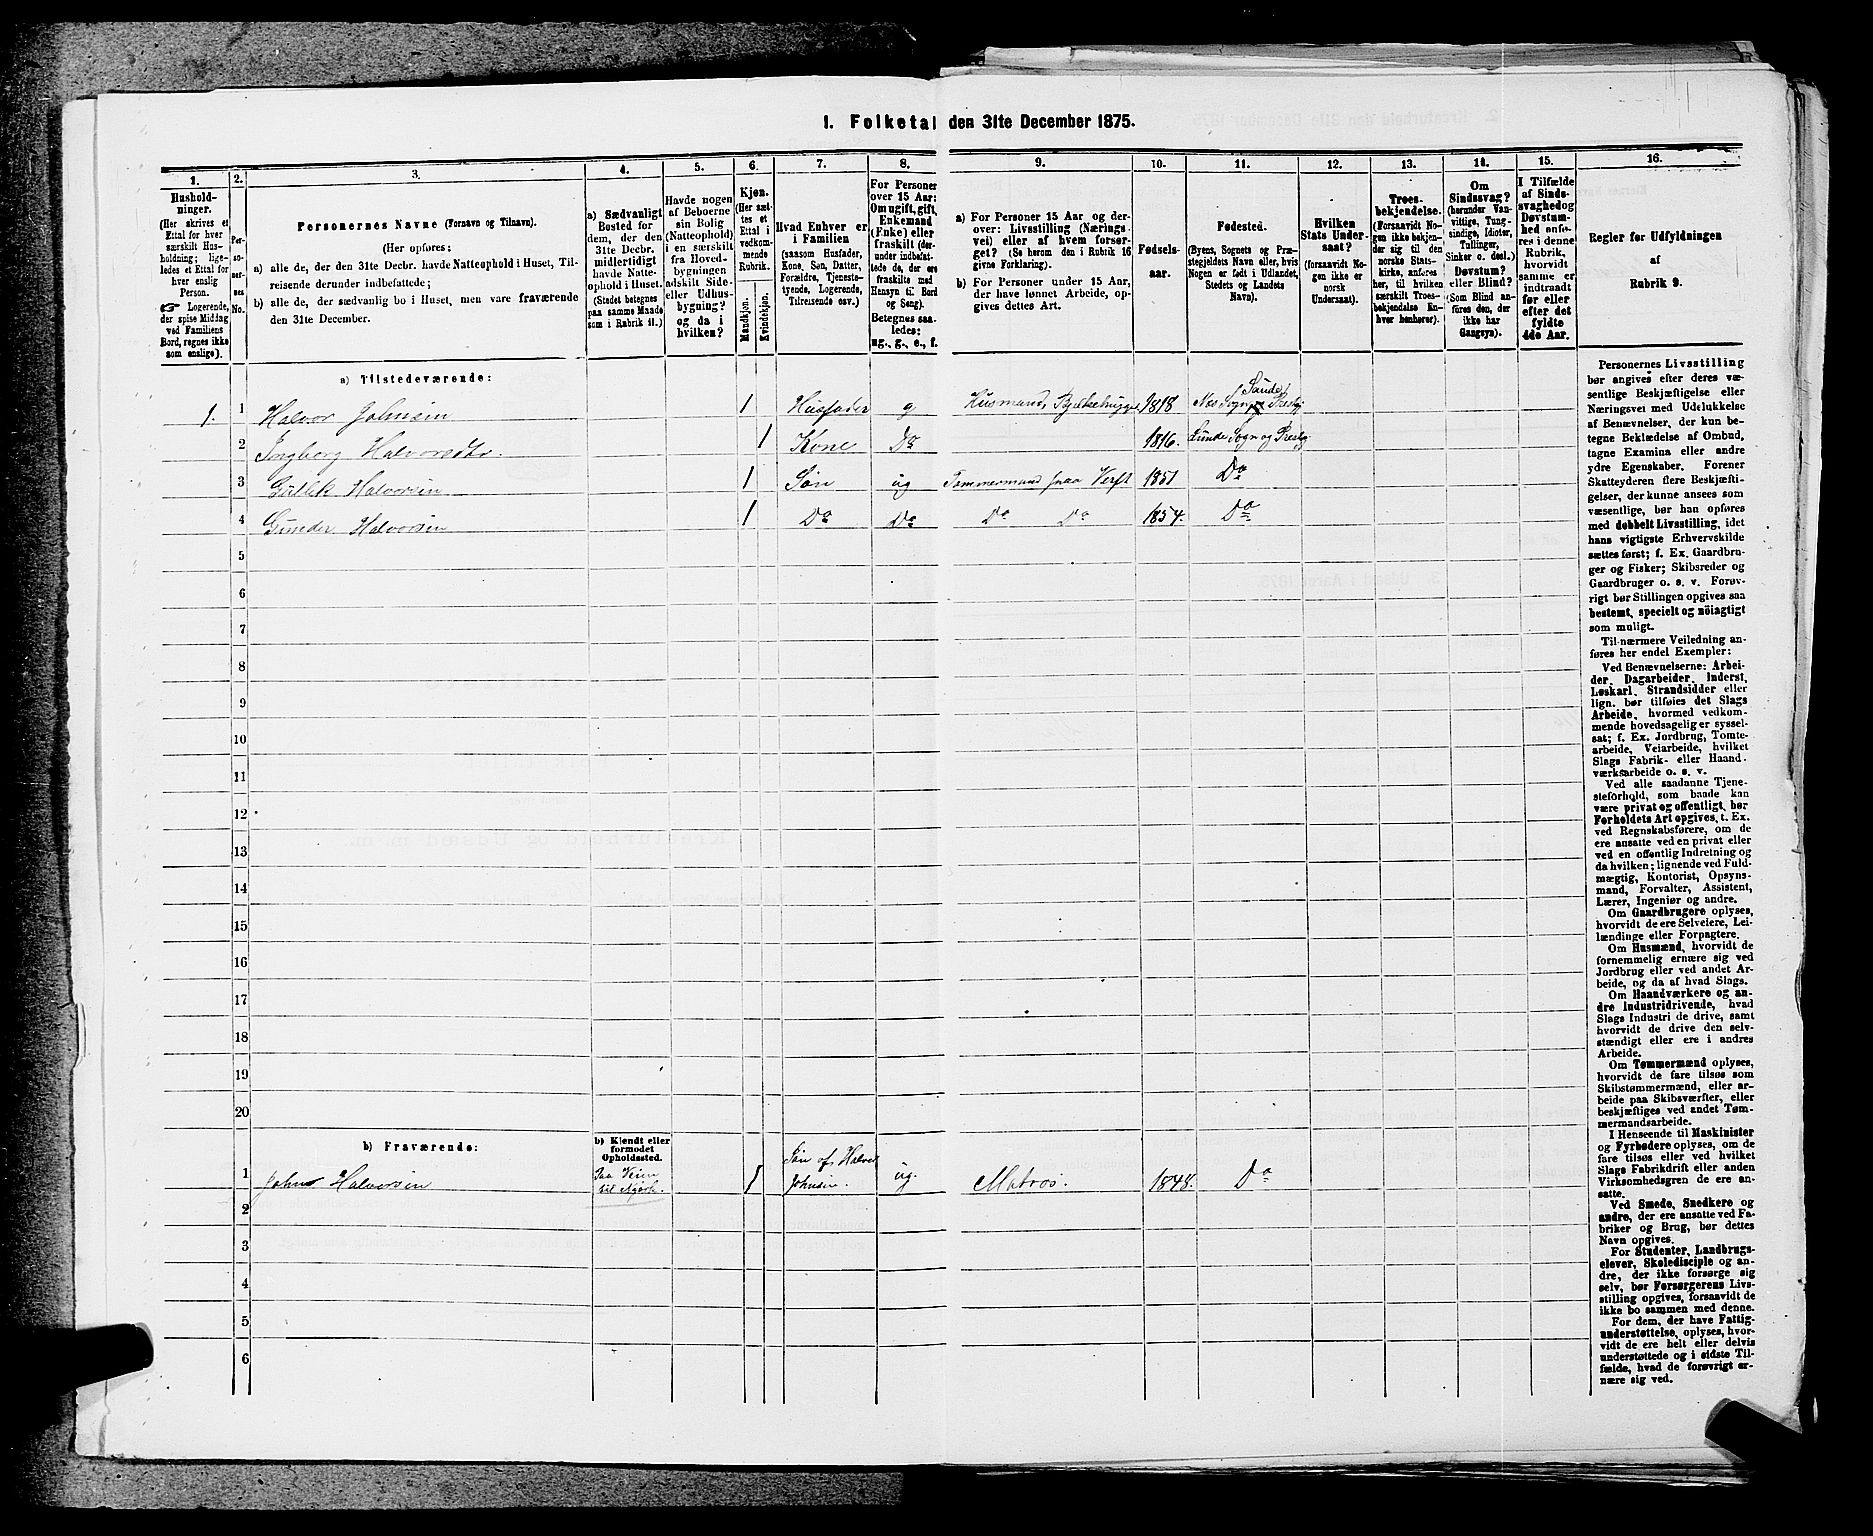 1. Folketal den 31te December 1875.
1.
Hushold-
ninger.
(Her skrives et
Ettal for hver
særskilt Hus-
holdning; lige-
ledes et Ettal for
hver enslig
Person.
☞ Logerende,
der spise Middag
ved Familiens
Bord, regnes ikke
som enslige).
2.
Per-
so-
ner-
nes
No.
3.
Personernes Navne (Fornavn og Tilnavn).
(Her opføres:
a) alle de, der den 31te Decbr. havde Natteophold i Huset, Til-
reisende derunder indbefattede;
b) alle de, der sædvanlig bo i Huset, men vare fraværende
den 31te December.
4.
a) Sædvanligt
Bosted for
dem, der den
31te Decbr.
midlertidigt
havde Natte-
ophold i Huset.
(Stedet betegnes
paa samme Maade
som i Rubrik 11.)
5.
Havde nogen
af Beboerne
sin Bolig
(Natteophold)
i en særskilt
fra Hoved-
bygningen
adskilt Side-
eller Udhus-
bygning?
og da i
hvilken?
6.
Kjøn.
(Her sæt-
tes et
Ettal i
vedkom-
mende
Rubrik.
Mandkjøn.
Kvindekjøn.
7.
Hvad Enhver er
i Familien
(saasom Husfader,
Kone, Søn, Datter,
Forældre, Tjeneste-
tyende, Logerende,
Tilreisende osv.)
8.
For Personer
over 15 Aar:
Om ugift, gift,
Enkemand
(Enke) eller
fraskilt (der-
under indbefat-
tede de, der ere
fraskilte med
Hensyn til Bord
og Seng).
Betegnes saa-
ledes:
ug., g., e., f.
9.
a) For Personer 15 Aar og der-
over: Livsstilling (Nærings-
vei) eller af hvem forsør-
get? (Se herom den i Rubrik 16
givne Forklaring).
b) For Personer under 15 Aar,
der have lønnet Arbeide, op-
gives dettes Art.
10.
Fødsels-
aar.
11.
Fødested.
(Byens, Sognets og Præ-
stegjeldets Navn eller, hvis
Nogen er født i Udlandet,
Stedets og Landets
Navn).
12.
Hvilken
Stats Under-
saat?
(forsaavidt No-
gen ikke er
norsk
Undersaat).
13.
Troes-
bekjendelse.
(Forsaavidt No-
gen ikke bekjen-
der sig til den
norske Stats-
kirke, anføres
her, til hvilken
særskilt Troes-
bekjendelse En-
hver henhører).
14.
Om
Sindssvag?
(herunder Van-
vittige, Tung-
sindige, Idioter,
Tullinger,
Sinker o. desl.)
Døvstum?
eller Blind?
(Som Blind an-
føres den, der
ikke har
Gangsyn).
15.
I Tilfælde
af Sinds-
svaghed og
Døvstum-
hed anføres
i denne
Rubrik,
hvorvidt
samme er
indtraadt
før eller
efter det
fyldte
4de Aar.
16.
Regler for Udfyldningen
af
Rubrik 9.
a) Tilstedeværende:
1. 1 Halvor Johnsen 1 Husfader g Husmand, Bjelkehugger 1818 Næs Sogn, Saude Prestgj
2 Ingborg Halvorsdtr. 1 Kone Do 1816. Lunde Sogn og Prestg
3 Gullik Halvorsen 1 Søn ug Tømmermand paa Verft 1851 Do
4 Gunder Halvorsen 1 Do Do Do Do 1854. Do
5
6
7
8
9
10
11
12
13
14
15
16
17
18
19
20
b) Fraværende:
b) Kjendt eller
formodet
Opholdssted.
1 John Halvorsen Paa Veien
til 1 Søn af Halvor
Johnsen. ug. Matros. 1848. Do
2
3
4
5
6
Personernes Livsstilling
bør angives efter deres væ-
sentlige Beskjæftigelse eller
Næringsvei med Udelukkelse
af Benævnelser, der kun be-
tegne Beklædelse af Ombud,
tagne Examina eller andre
ydre Egenskaber. Forener
Skatteyderen flere Beskjæfti-
gelser, der kunne ansees som
væsentlige, bør han opføres
med dobbelt Livsstilling, idet
hans vigtigste Erhvervskilde
sættes først; f. Ex. Gaardbru-
ger og Fisker; Skibsreder og
Gaardbruger o. s. v. Forøv-
rigt bør Stillingen opgives saa
bestemt, specielt og nöiagtigt
som muligt.
Til nærmere Veiledning an-
føres her endel Exempler:
Ved Benævnelserne: Arbei-
der, Dagarbeider, Inderst,
Løskarl, Strandsidder eller
lign. bør tilføies det Slags
Arbeide, hvormed vedkom-
mende hovedsagelig er syssel-
sat; f. Ex. Jordbrug, Tomte-
arbeide, Veiarbeide, hvilket
Slags Fabrik- eller Haand-
værksarbeide o. s. v.
Ved alle saadanne Tjene-
steforhold, som baade kan
være privat og offentligt, bør
Forholdets Art opgives, t. Ex.
ved Regnskabsførere, om de
ere ansatte ved en privat eller
ved en offentlig Indretning og
da hvilken; lignende ved Fuld-
mægtig, Kontorist, Opsyns-
mand, Forvalter, Assistent,
Lærer, Ingeniør og andre.
Om Gaardbrugere oplyses,
hvorvidt de ere Selveiere, Lei-
lændinge eller Forpagtere.
Om Husmænd, hvorvidt de
fornemmelig ernære sig ved
Jordbrug eller ved andet Ar-
beide, og da af hvad Slags.
Om Haandværkere og an-
dre Industridrivende, hvad
Slags Industri de drive, samt
hvorvidt de drive den selv-
stændigt eller ere i andres
Arbeide.
Om Tømmermænd oplyses,
hvorvidt de fare tilsøs som
Skibstømmermænd, eller ar-
beide paa Skibsværfter, eller
beskjæftiges ved andet Tøm-
mermandsarbeide.
I Henseende til Maskinister
og Fyrbødere oplyses, om de
fare tilsøs eller ved hvilket
Slags Fabrikdrift eller anden
Virksomhedsgren de ere an-
satte.
Ved Smede, Snedkere og
andre, der ere ansatte ved Fa-
briker og Brug, bør dettes
Navn opgives.
For Studenter, Landbrugs-
elever, Skoledisciple og an-
dre, der ikke forsørge sig
selv, bør Forsørgerens Livs-
stilling opgives, forsaavidt de
ikke bo sammen med denne.
For dem, der have Fattig-
understøttelse, oplyses, hvor-
vidt de ere helt eller delvis
understøttede og i sidste Til-
fælde, hvad de forøvrigt er-
nære sig ved.